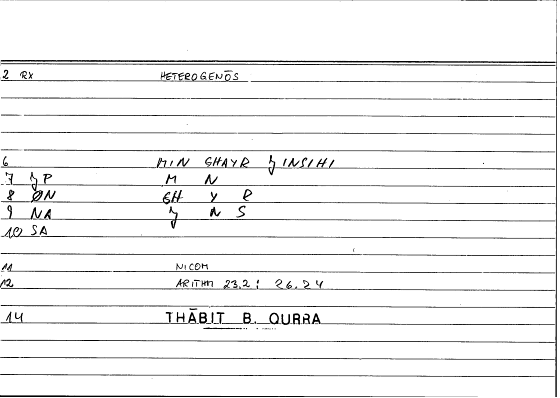 2 RX HETEROGENŌS
6 MIN GHAYR ǦINSIHI
7 ǦP M N
8 ØN GH Y R
9 NA Ǧ N S
10 SA
11 NICOM
12 ARITHM 23.2 : 26.24
14 THĀBIT B. QURRA